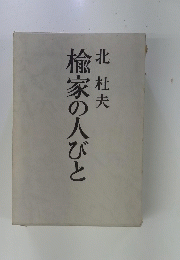 北 杜夫
楡家の人びと